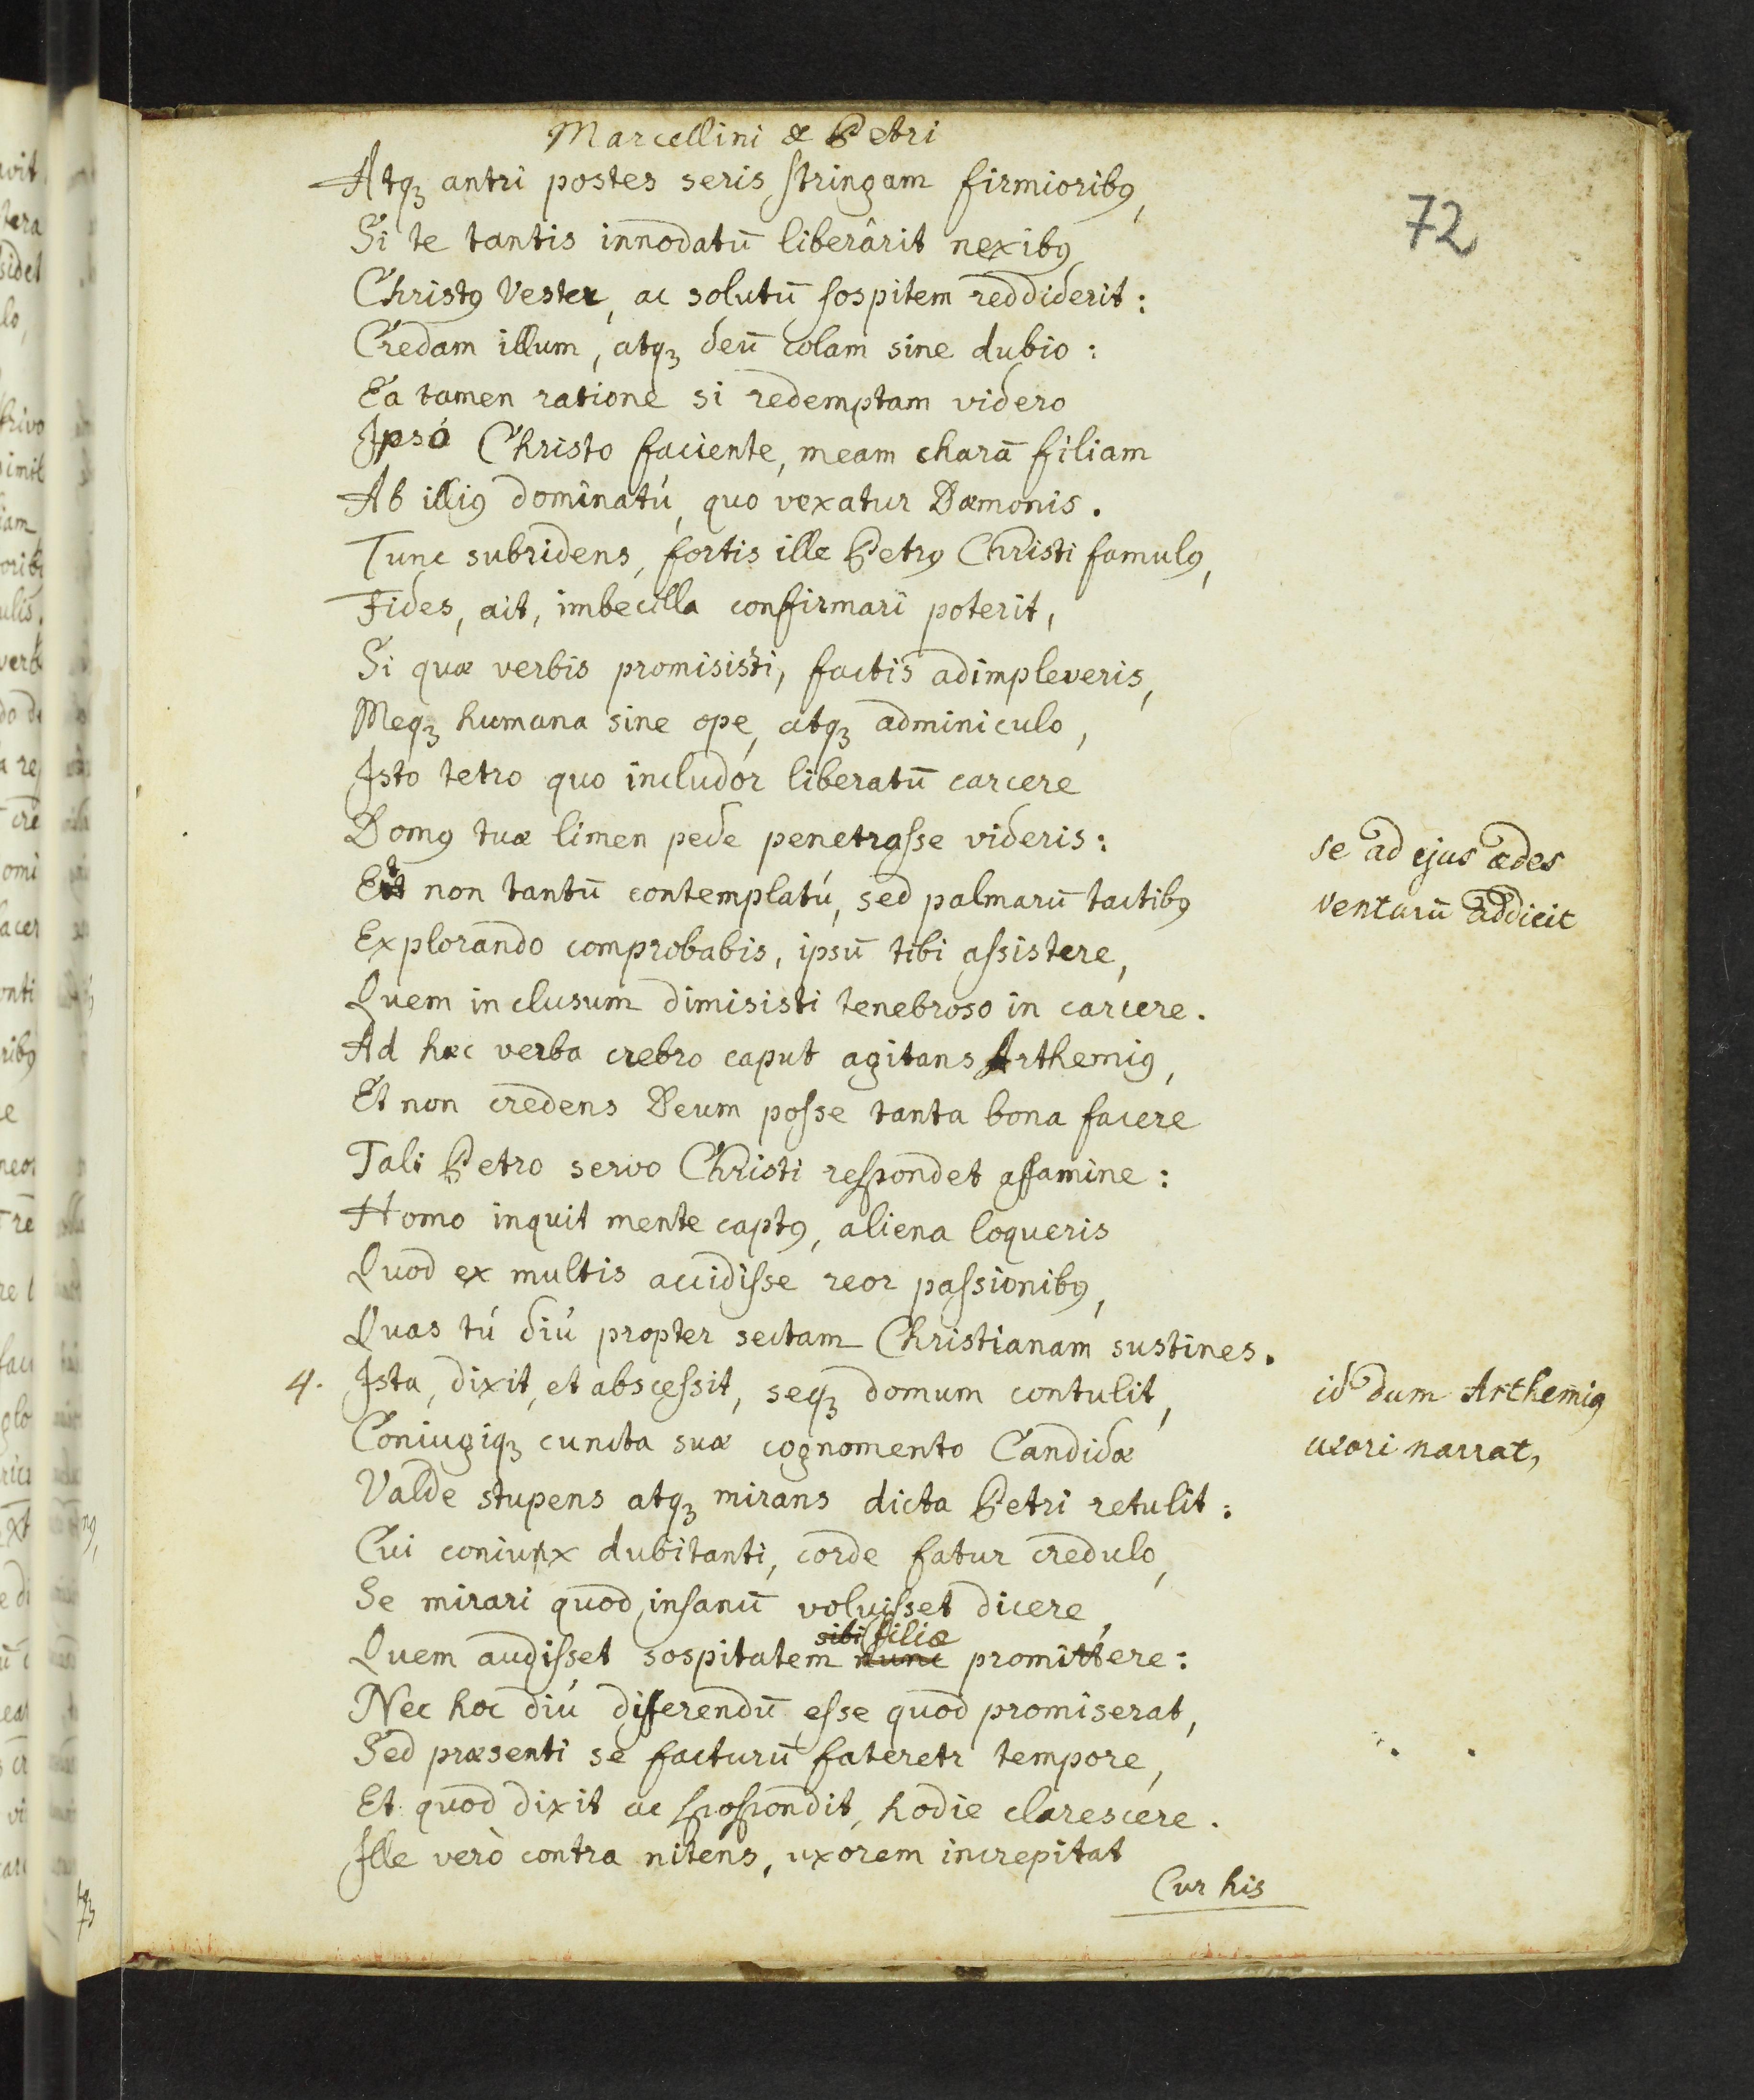 Marcellini & Petri
72
Atqꝫ antri postes seris stringam firmioribꝰ,
Si te tantis innodatū liberârit nexibꝰ
Christꝰ Vester, ac solutū sospitem reddiderit:
Credam illum, atqꝫ deū colam sine dubio:
Ea tamen ratione si redemptam videro
Ipsó Christo faciente, meam charā filiam
Ab illiꝰ dominatú, quo vexatur Dæmonis.
Tunc subridens, fortis ille Petrꝰ Christi famulꝰ,
Fides, ait, imbecilla confirmari poterit,
Si quæ verbis promisisti, factis adimpleveris,
Meqꝫ humana sine ope, atqꝫ adminiculo,
Isto tetro quo includor liberatū carcere
Domꝰ tuæ limen pede penetraſse videris:
se ad ejus ædes
Et non tantū contemplatú, sed palmarū tactibꝰ
venturū addicit
Explorando comprobabis, ipsū tibi aſsistere,
Quem inclusum dimisisti tenebroso in carcere.
Ad hæc verba crebro caput agitans Arthemiꝰ,
Et non credens Deum poſse tanta bona facere
Tali Petro servo Christi reſpondet affamine:
Homo inquit mente captꝰ, aliena loqueris
Quod ex multis accidiſse reor paſsionibꝰ,
Quas tú diú propter sectam Christianam sustines.
4. Ista, dixit, et absceſsit, seqꝫ domum contulit,
id dum Arthemiꝰ
Coniugiqꝫ cuncta suæ cognomento Candidæ
uxori narrat,
Valde stupens atqꝫ mirans dicta Petri retulit:
Cui coniunx dubitanti, corde fatur credulo,
Se mirari quod insanū voluiſset dicere,
sibi filiæ
Quem audiſset sospitatem nunc promittere:
Nec hoc diú differendū eſse quod promiserat,
Sed præsenti se facturū fateretr tempore,
Et quod dixit ac ſpoſpondit, hodie clarescere.
Ille verò contra nitens, uxorem increpitat
Cur his